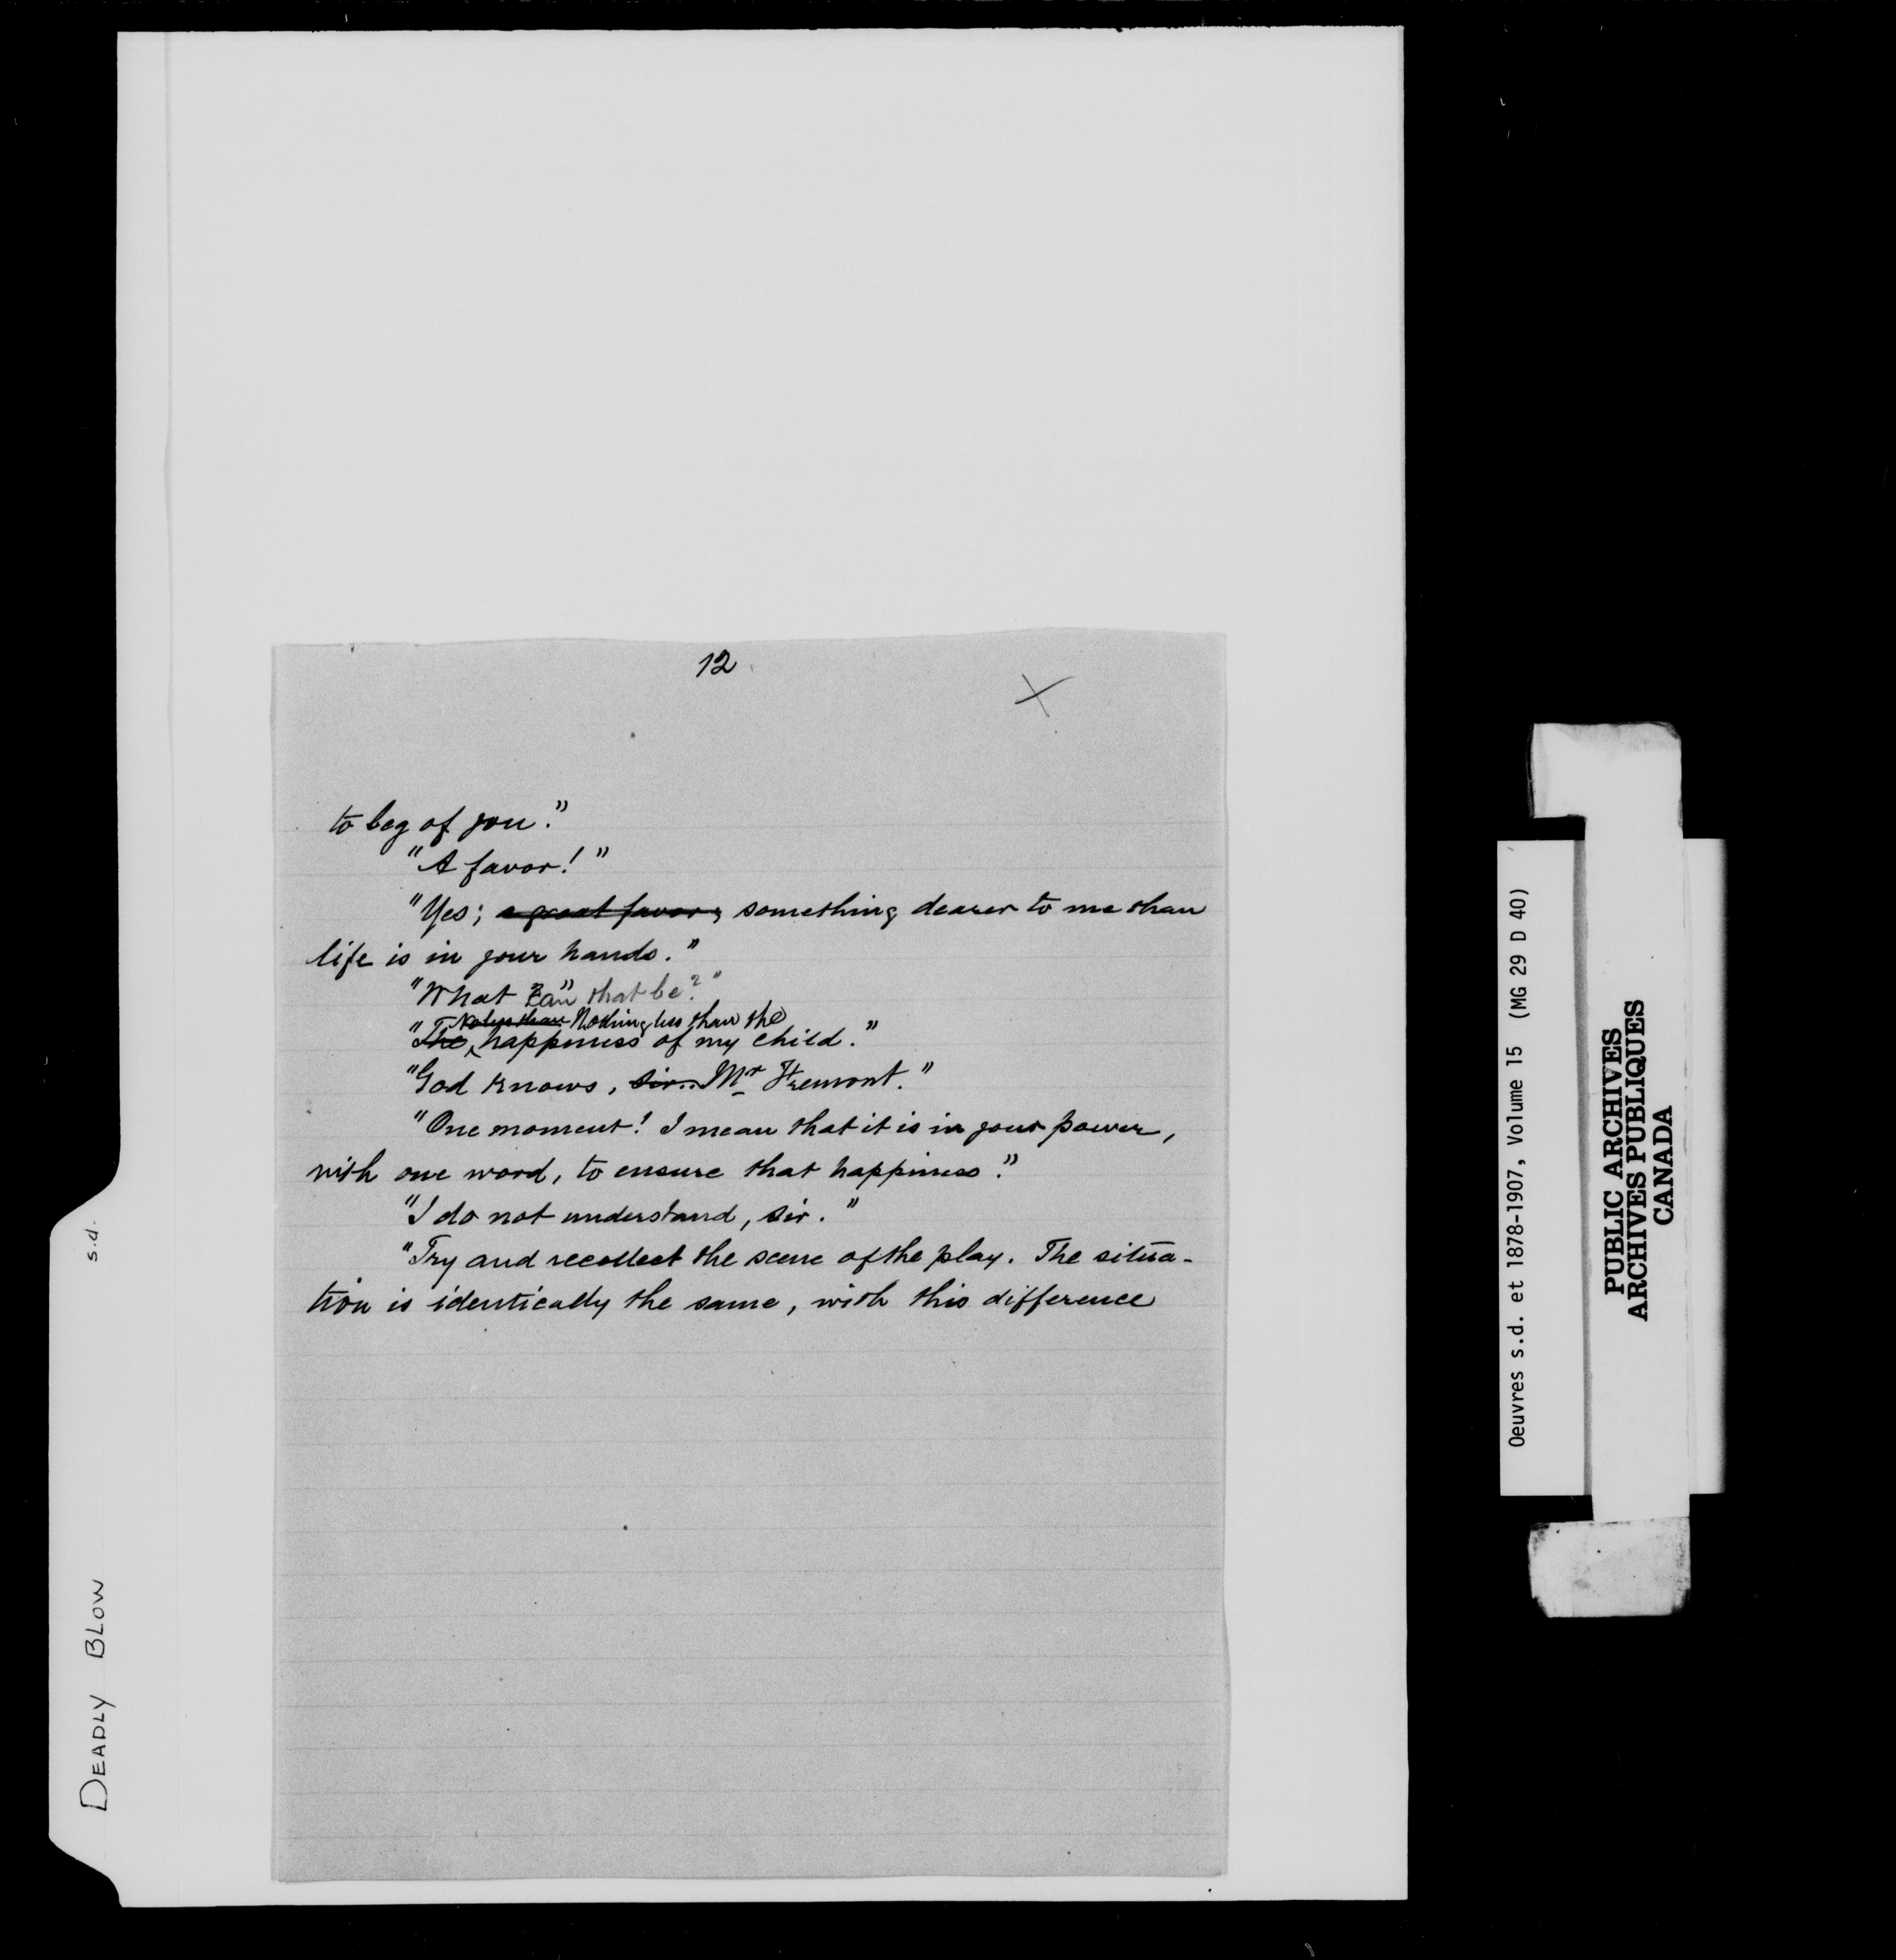 12
X
to beg of you."
"A favor!"
"Yes; a great favor; something dearer to me than
life is in your hands."
"What can that be?"
No less than Nothing less than the
"The happiness of my child."
"God knows, sir.. Mr Fremont."
"One moment! I mean that it is in your power,
with one word, to ensure that happiness."
"I do not understand, sir."
"Try and recollect the scene of the play. The situa-
tion is identically the same, with this difference
DEADLY BLOW s.d.
Oeuvres s.d. et 1878-1907, Volume 15 (MG 29 D 40)
PUBLIC ARCHIVES
ARCHIVES PUBLIQUES
CANADA